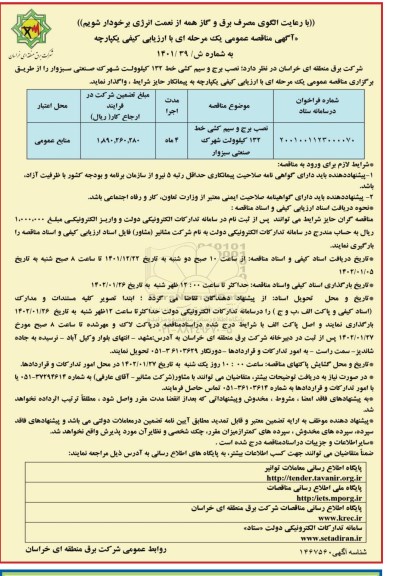 ((با رعایت الگوی مصرف برق و گاز همه از نعمت انرژی برخودار شویم))
«آگهی مناقصه عمومی یک مرحله ای با ارزیابی کیفی یکپارچه
به شماره ش/ ۳۹ /۱۴۰۱
شرکت برق منطقه ای خراسان در نظر دارد: نصب برج و سیم کشی خط ۱۳۲ کیلوولت شهرک صنعتی سبزوار را از طریق
برگزاری مناقصه عمومی یک مرحله ای با ارزیابی کیفی یکپارچه به پیمانکار حایز شرایط ، واگذار نماید.
شماره فراخوان درسامانه ستاد
موضوع مناقصه
مدت اجرا
مبلغ تضمین شرکت در فرایند ارجاع کار( ریال)
محل اعتبار
۲۰۰۱۰۰۱۱۲۳۰۰۰۰۷۰
نصب برج و سیم کشی خط ۱۳۲ کیلوولت شهرک صنعتی سبزوار
۴ ماه
۱,۸۹۰,۲۶۰,۲۸۰
منابع عمومی
*شرایط لازم برای ورود به مناقصه:
۱-پیشنهاددهنده باید دارای گواهی نامه صلاحیت پیمانکاری حداقل رتبه ۵ نیرو از سازمان برنامه و بودجه کشور با ظرفیت آزاد،
باشد.
۲- پیشنهاددهنده باید دارای گواهینامه صلاحیت ایمنی معتبر از وزارت تعاون، کار و رفاه اجتماعی باشد.
*نحوه دریافت اسناد ارزیابی کیفی و اسناد مناقصه :
مناقصه گران حایز شرایط می توانند پس از ثبت نام در سامانه تدارکات الکترونیکی دولت و واریز الکترونیکی مبلغ ۱.۰۰۰.۰۰۰
ریال به حساب مندرج در سامانه تدارکات الکترونیکی دولت به نام شرکت مشانیر (مشاور) فایل اسناد ارزیابی کیفی و اسناد مناقصه را
بارگیری نمایند.
*تاریخ دریافت اسناد کیفی و اسناد مناقصه: از ساعت ۱۰ صبح دو شنبه به تاریخ ۱۴۰۱/۱۲/۲۲ تا ساعت ۸ صبح شنبه به تاریخ
۱۴۰۲/۰۱/۰۵
*تاریخ بارگذاری اسناد کیفی واسناد مناقصه: حداکثر تا ساعت ۱۲:۰۰ ظهر شنبه به تاریخ ۱۴۰۲/۰۱/۲۶
*تاریخ و محل تحویل اسناد: از پیشنهاد دهندگان تقاضا می گردد : ابتدا تصویر کلیه مستندات و مدارک
(اسناد کیفی و پاکت الف، ب و ج ) را درسامانه تدارکات الکترونیکی دولت حداکثر تا ساعت ۱۲ظهر شنبه به تاریخ ۱۴۰۲/۰۱/۲۶
بارگذاری نمایند و اصل پاکت الف با شرایط درج شده دراسنادمناقصه درپاکت لاک و مهرشده تا ساعت ۸ صبح مورخ
۱۴۰۲/۰۱/۲۷ پس از ثبت در دبیرخانه شرکت برق منطقه ای خراسان به آدرس:مشهد - انتهای بلوار وکیل آباد - نرسیده به جاده
شاندیز– سمت راست – به امور تدارکات و قراردادها -دورنگار ۳۶۱۰۳۶۲۹-۰۵۱ تحویل نمایند.
*تاریخ و محل گشایش پاکتهای مناقصه: ساعت ۱۰:۰۰ روز یک شنبه به تاریخ ۱۴۰۲/۰۱/۲۷ در محل امور تدارکات و قراردادها.
* در صورت نیاز به دریافت توضیحات بیشتر، متقاضیان می توانند با مشاور(شرکت مشانیر- آقای عارفی) به شماره ۳۷۲۹۴۶۱۴-۰۵۱ یا
با امور تدارکات و قراردادها به شماره ۳۶۱۰۳۶۱۴-۰۵۱ تماس حاصل فرمایند.
*به پیشنهادهای فاقد امضا ، مشروط ، مخدوش وپیشنهاداتی که بعداز انقضا مدت مقرر واصل شود ، مطلقاً ترتیب اثرداده نخواهد
شد.
*پیشنهاد دهنده موظف به ارایه تضمین معتبر و قابل تمدید مطابق آیین نامه تضمین درمعاملات دولتی می باشد و پیشنهادهای فاقد
سپرده، سپرده های مخدوش ، سپرده های کمترازمیزان مقرر، چک شخصی و نظایرآن مورد پذیرش واقع نخواهد شد.
*سایراطلاعات و جزییات دراسنادمناقصه درج شده است .
ضمناً متقاضیان می توانند جهت کسب اطلاعات بیشتر، به پایگاه های اطلاع رسانی به آدرس ذیل مراجعه نمایند:
پایگاه اطلاع رسانی معاملات توانیر
http://tender.tavanir.org.ir
پایگاه ملی اطلاع رسانی مناقصات
http://iets.mporg.ir
پایگاه اطلاع رسانی مناقصات شرکت برق منطقه ای خراسان
www.krec.ir
سامانه تدارکات الکترونیکی دولت «ستاد»
www.setadiran.ir
روابط عمومی شرکت برق منطقه ای خراسان
شناسه آگهی:۱۴۶۷۵۶۰